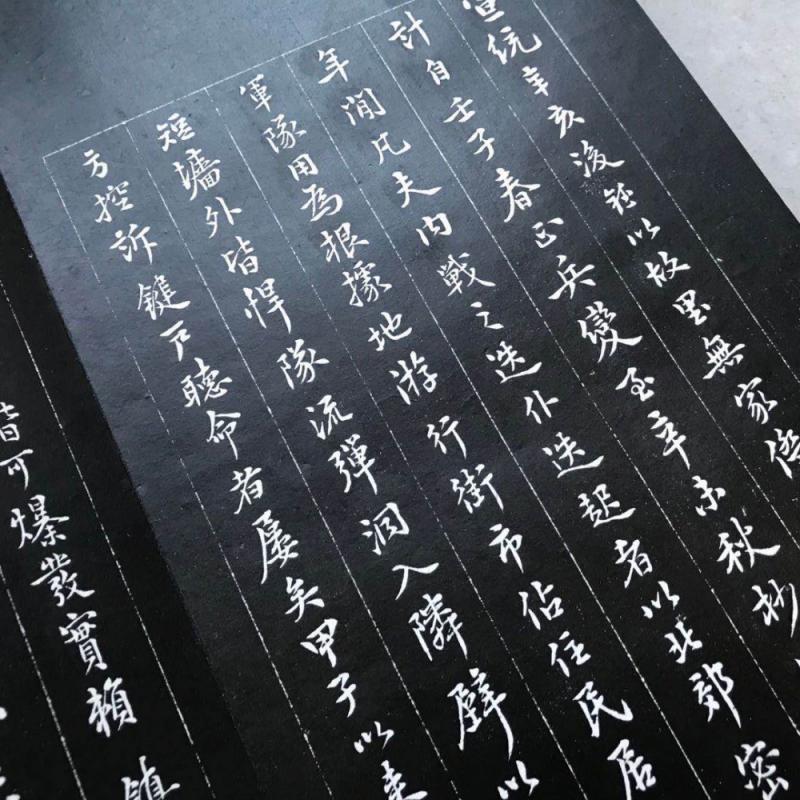 宣統辛亥後以故里無家
計自壬子春正兵變至辛未秋杪
年間凡夫內戰之迭仆迭起者以北郊密
軍隊用為根據地游行街市佔住民居
短墻外皆悍隊流彈洞入隣壁以
方控訴鍵戶聽命者屢矣甲子以来
皆可爆發實賴鎮